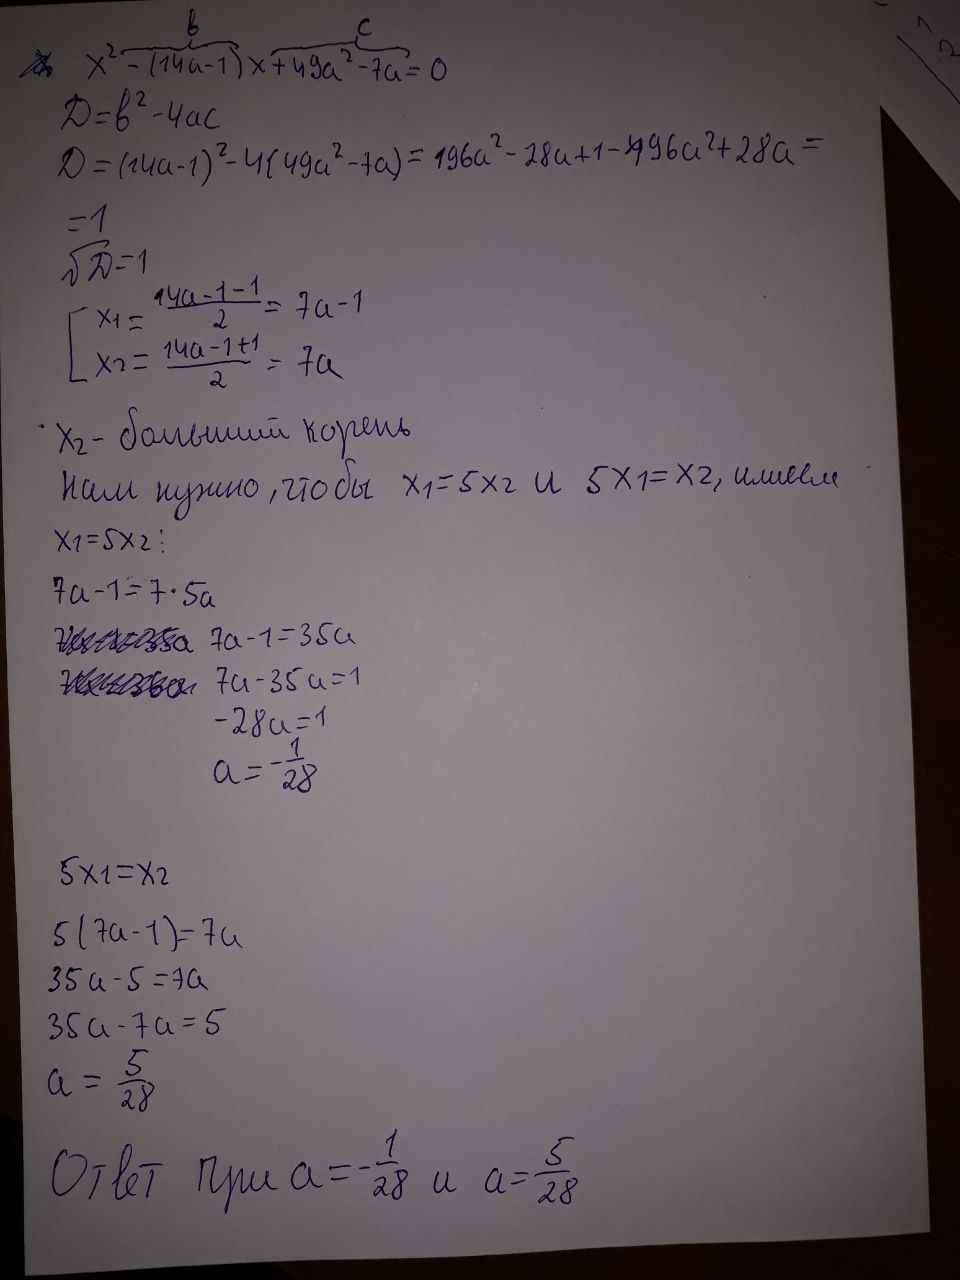 в c
x² - (14a-1)x + 49a² - 7a = 0
D = в² - 4ac
D = (14a-1)² - 4(49a² - 7a) = 196a² - 28a + 1 - 196a² + 28a =
= 1
√D = 1
x1 = (14a-1-1)/2 = 7a-1
x2 = (14a-1+1)/2 = 7a
x2 - больший корень
Нам нужно, чтобы x1 = 5x2 и 5x1 = x2, имеем
x1 = 5x2:
7a-1 = 7·5a
7a-1 = 35a
7a-35a = 1
-28a = 1
a = -1/28
5x1 = x2
5(7a-1) = 7a
35a-5 = 7a
35a-7a = 5
a = 5/28
Ответ при a = -1/28 и a = 5/28